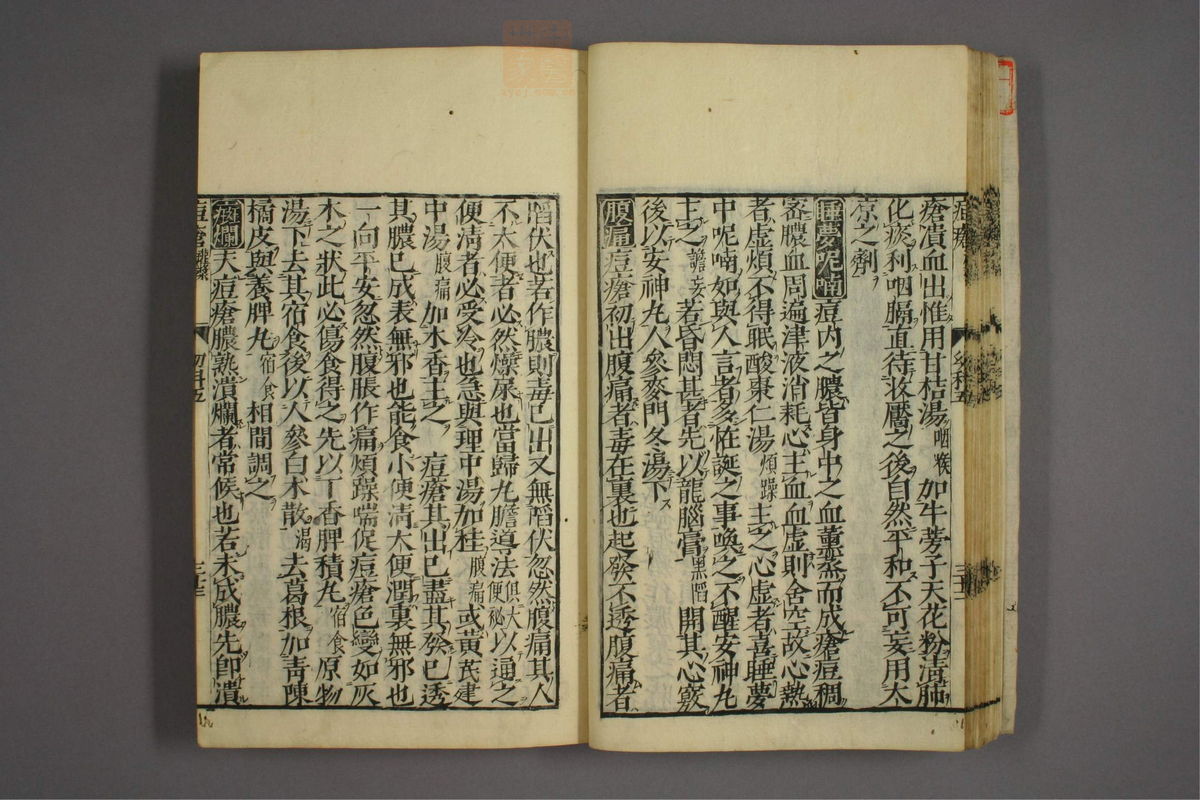 瘡潰血出惟用甘桔湯咽喉加牛蒡子天花粉清肺
化痰利咽膈直待收靨之後自然平和不可妄用大
凉之劑
睡夢呢喃痘内之膿皆身中之血薰蒸而成瘡痘稠
密膿血周遍津液消耗心主血血虛則舍空故心熱
者虛煩不得眠酸棗仁湯煩躁主之心虛者喜睡夢
中呢喃如與人言者多怪誕之事喚之不醒安神丸
主之譫妄若昏悶甚者先以龍腦膏黑陷開其心竅
後以安神丸人參麥門冬湯下
腹痛痘瘡初出腹痛者毒在裏也起發不透腹痛者
陷伏也若作膿則毒已出又無陷伏忽然腹痛其人
不大便者必然燥屎也當歸丸膽導法俱大便秘以通之
便清者必受冷也急與理中湯加桂腹痛或黃芪建
中湯腹痛加木香主之 痘瘡其出已盡其發已透
其膿已成表無邪也能食小便清大便潤裏無邪也
一向平安忽然腹脹作痛煩躁喘促痘瘡色變如灰
木之狀此必傷食得之先以丁香脾積丸宿食原物
湯下去其宿食後以人參白朮散渴去葛根加青陳
橘皮與養脾丸宿食相間調之
癍爛夫痘瘡膿熟潰爛者常候也若未成膿先即潰
痘瘡 幼科五